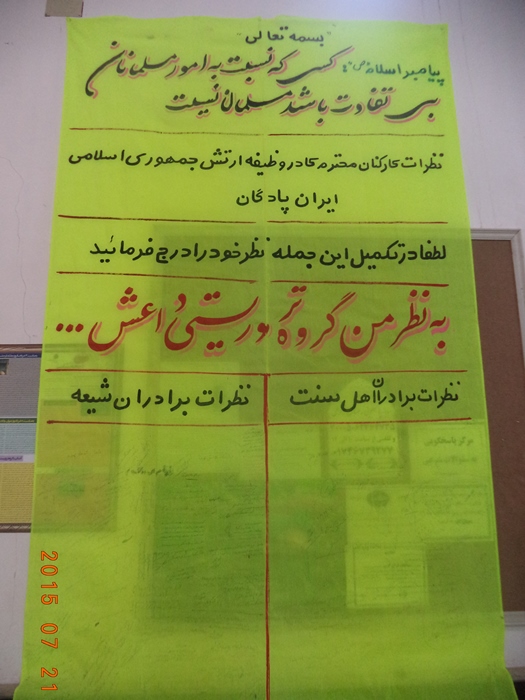 بسمه تعالی
پیامبر اسلام (ص): کسی که نسبت به امور مسلمانان
بی تفاوت باشد مسلمان نیست
نظرات کارکنان محترم کادر و وظیفه ارتش جمهوری اسلامی
ایران پادگان
لطفا در تکمیل این جمله نظر خود را درج فرمائید
به نظر من گروه تروریستی داعش ...
نظرات برادران اهل سنت
نظرات برادران شیعه
2015 07 21